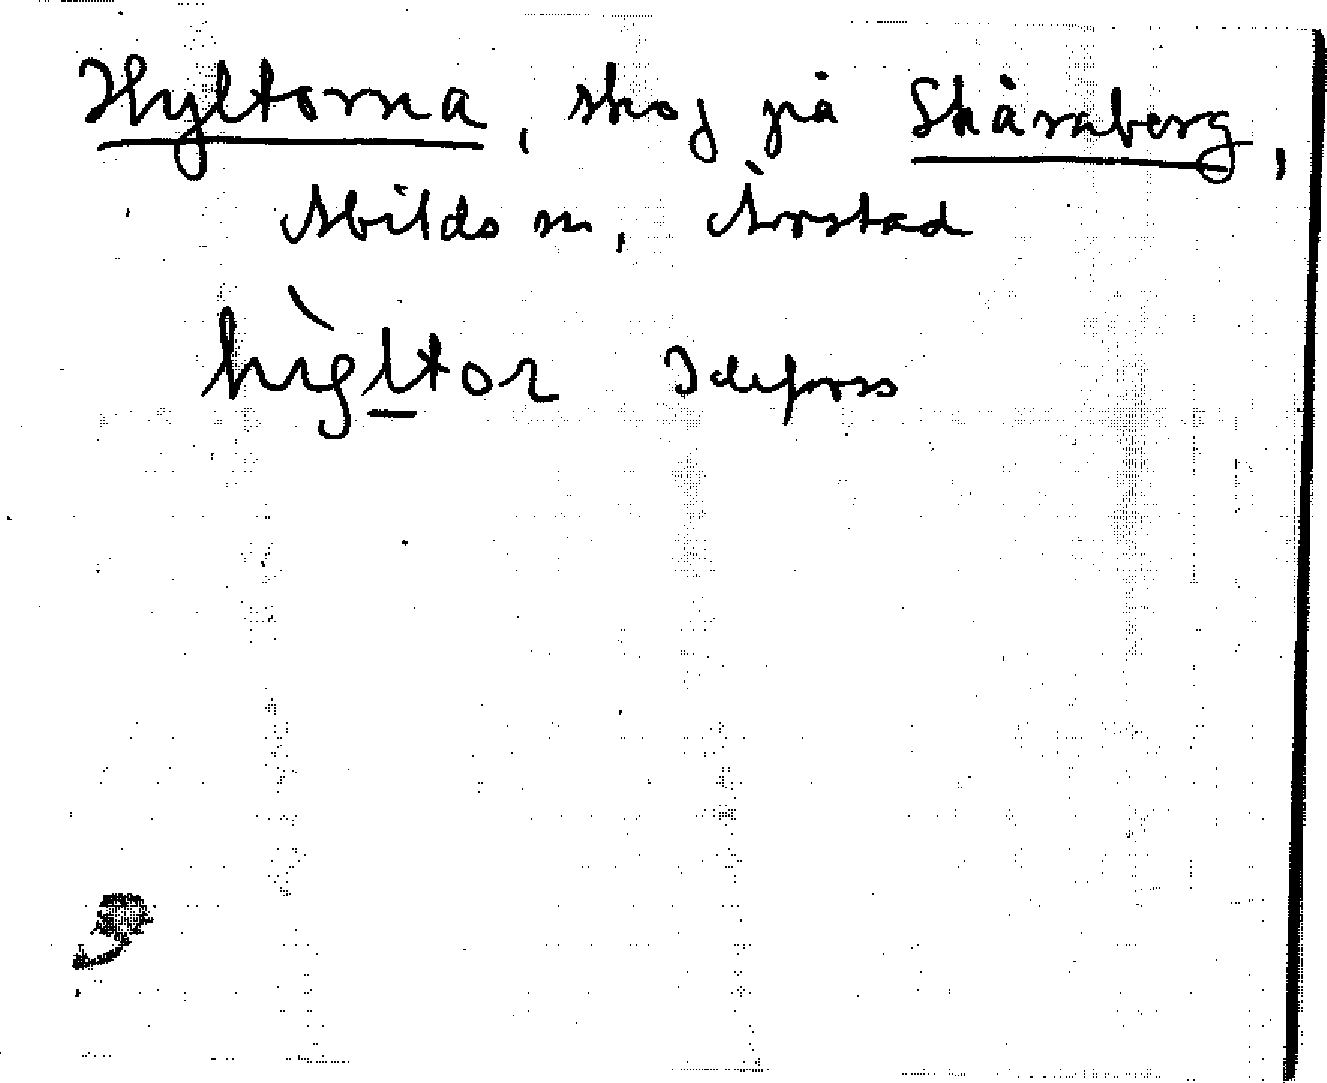 Hyltorna, skog på Skåraberg,
Abilds sn, Årstad
hỳltor Idefors